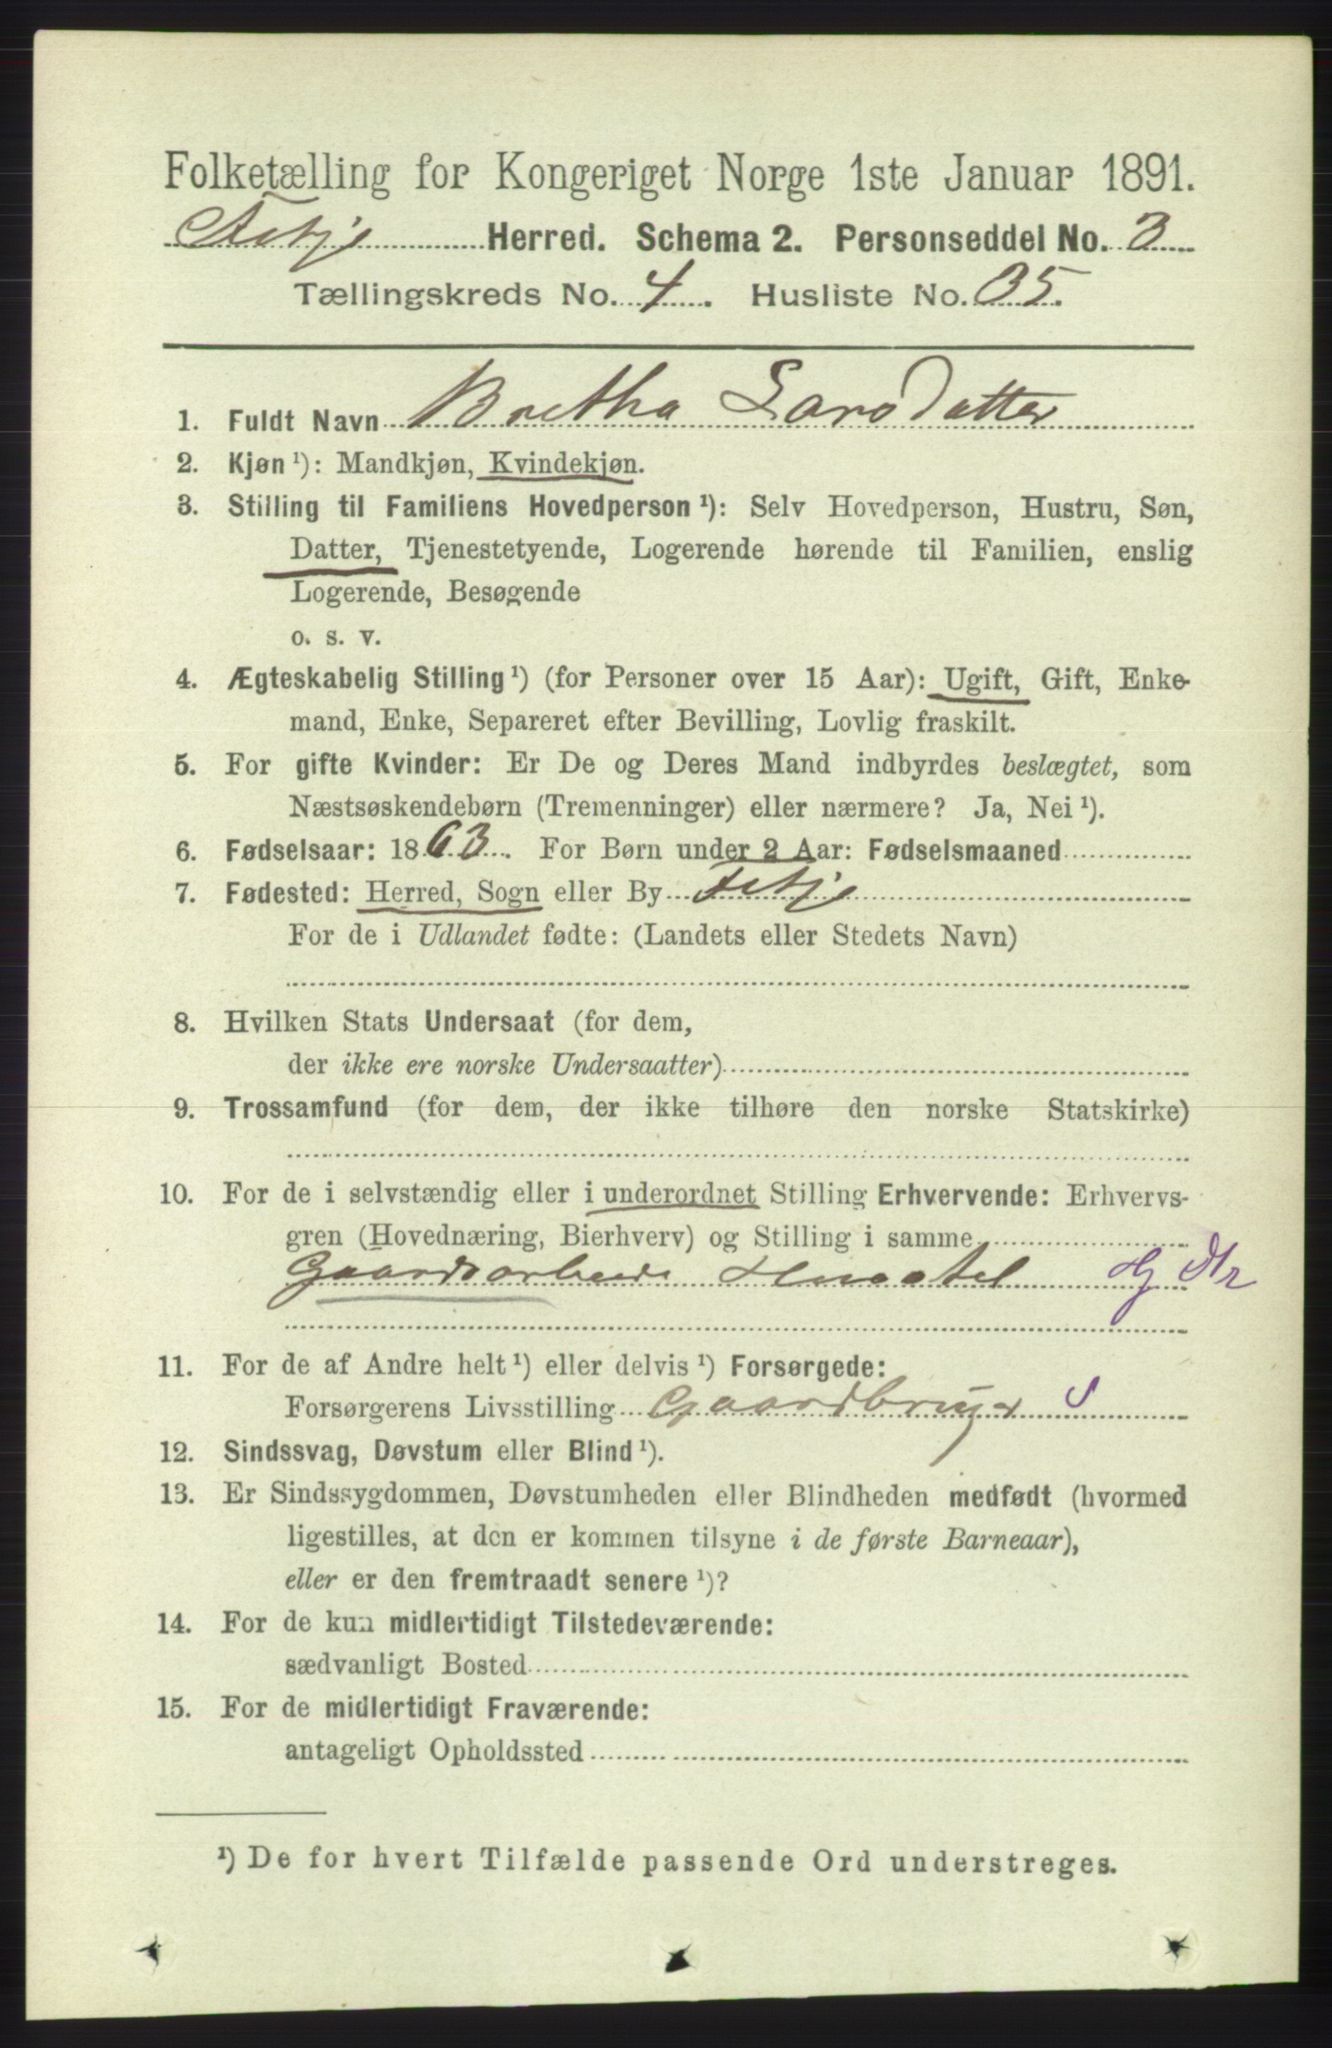 Folketælling for Kongeriget Norge 1ste Januar 1891.
Fitje Herred. Schema 2. Personseddel No. 3
Tællingskreds No. 4. Husliste No. 35.
1. Fuldt Navn Bretha Larsdatter
2. Kjøn ¹): Mandkjøn, Kvindekjøn.
3. Stilling til Familiens Hovedperson ¹): Selv Hovedperson, Hustru, Søn,
Datter, Tjenestetyende, Logerende hørende til Familien, enslig
Logerende, Besøgende
o. s. v.
4. Ægteskabelig Stilling ¹) (for Personer over 15 Aar): Ugift, Gift, Enke-
mand, Enke, Separeret efter Bevilling, Lovlig fraskilt.
5. For gifte Kvinder: Er De og Deres Mand indbyrdes beslægtet, som
Næstsøskendebørn (Tremenninger) eller nærmere? Ja, Nei ¹).
6. Fødselsaar: 1863. For Børn under 2 Aar: Fødselsmaaned
7. Fødested: Herred, Sogn eller By Fitje
For de i Udlandet fødte: (Landets eller Stedets Navn)
8. Hvilken Stats Undersaat (for dem,
der ikke ere norske Undersaatter)
9. Trossamfund (for dem, der ikke tilhøre den norske Statskirke)
10. For de i selvstændig eller i underordnet Stilling Erhvervende: Erhvervs-
gren (Hovednæring, Bierhverv) og Stilling i samme
Gaardsarbeide Huusstel
11. For de af Andre helt ¹) eller delvis ¹) Forsørgede:
Forsørgerens Livsstilling Gaardbruger S
12. Sindssvag, Døvstum eller Blind ¹).
13. Er Sindssygdommen, Døvstumheden eller Blindheden medfødt (hvormed
ligestilles, at den er kommen tilsyne i de første Barneaar),
eller er den fremtraadt senere ¹)?
14. For de kun midlertidigt Tilstedeværende:
sædvanligt Bosted
15. For de midlertidigt Fraværende:
antageligt Opholdssted
¹) De for hvert Tilfælde passende Ord understreges.